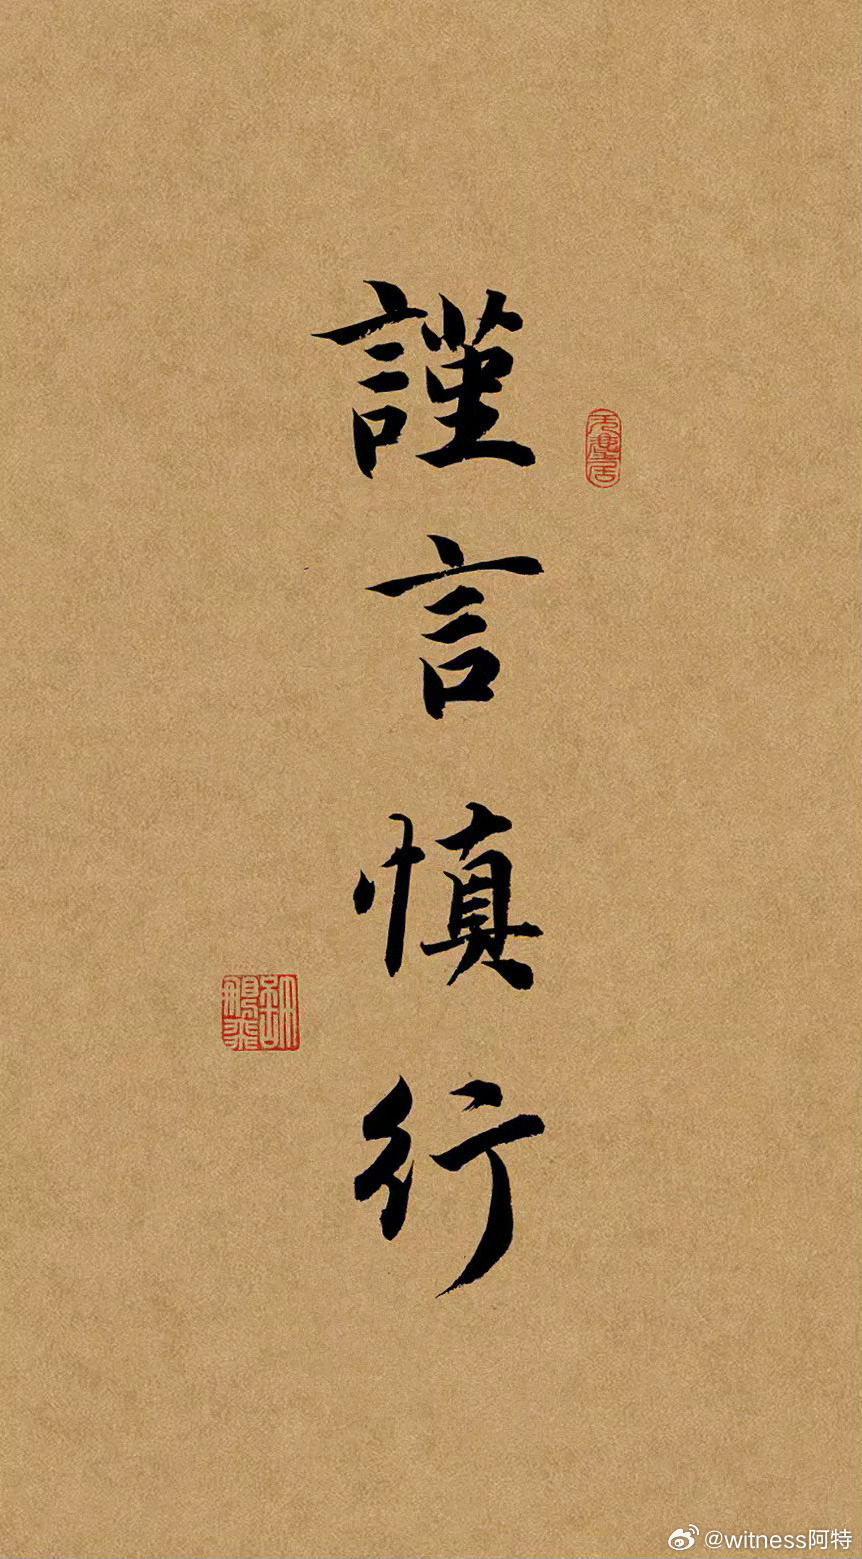 謹言慎行
@witness阿特